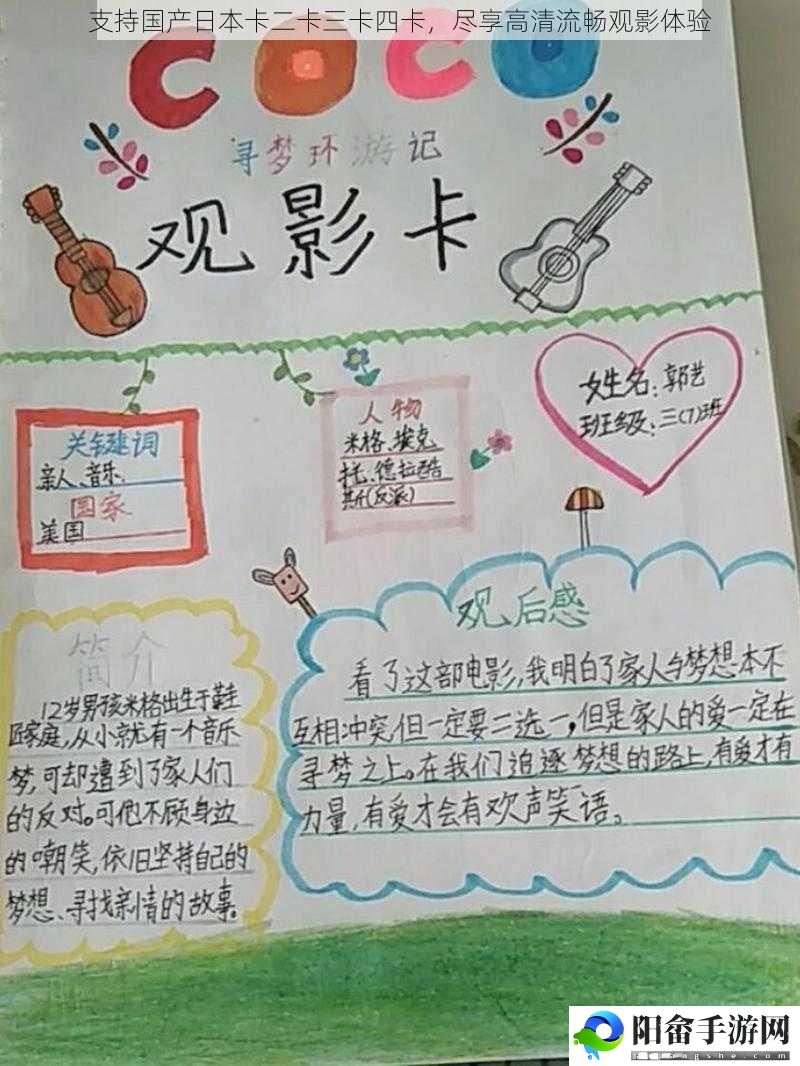 支持国产日本卡二卡三卡四卡，尽享高清流畅观影体验
COCO
寻梦环游记
观影卡
关键词
亲人、音乐
国家
美国
人物
米格、埃克
托、德拉酷
斯(反派)
女生名:郭艺
班级:三(7)班
简介
12岁男孩米格出生于鞋
匠家庭,从小就有一个音乐
梦,可却遭到了家人们
的反对。可他不顾身边
的嘲笑,依旧坚持自己的
梦想、寻找亲情的故事。
观后感
看了这部电影,我明白了家人与梦想本不
互相冲突,但一定要二选一,但是家人的爱一定在
寻梦之上。在我们追逐梦想的路上,有爱才有
力量,有爱才会有欢声笑语。
阳畲手游网